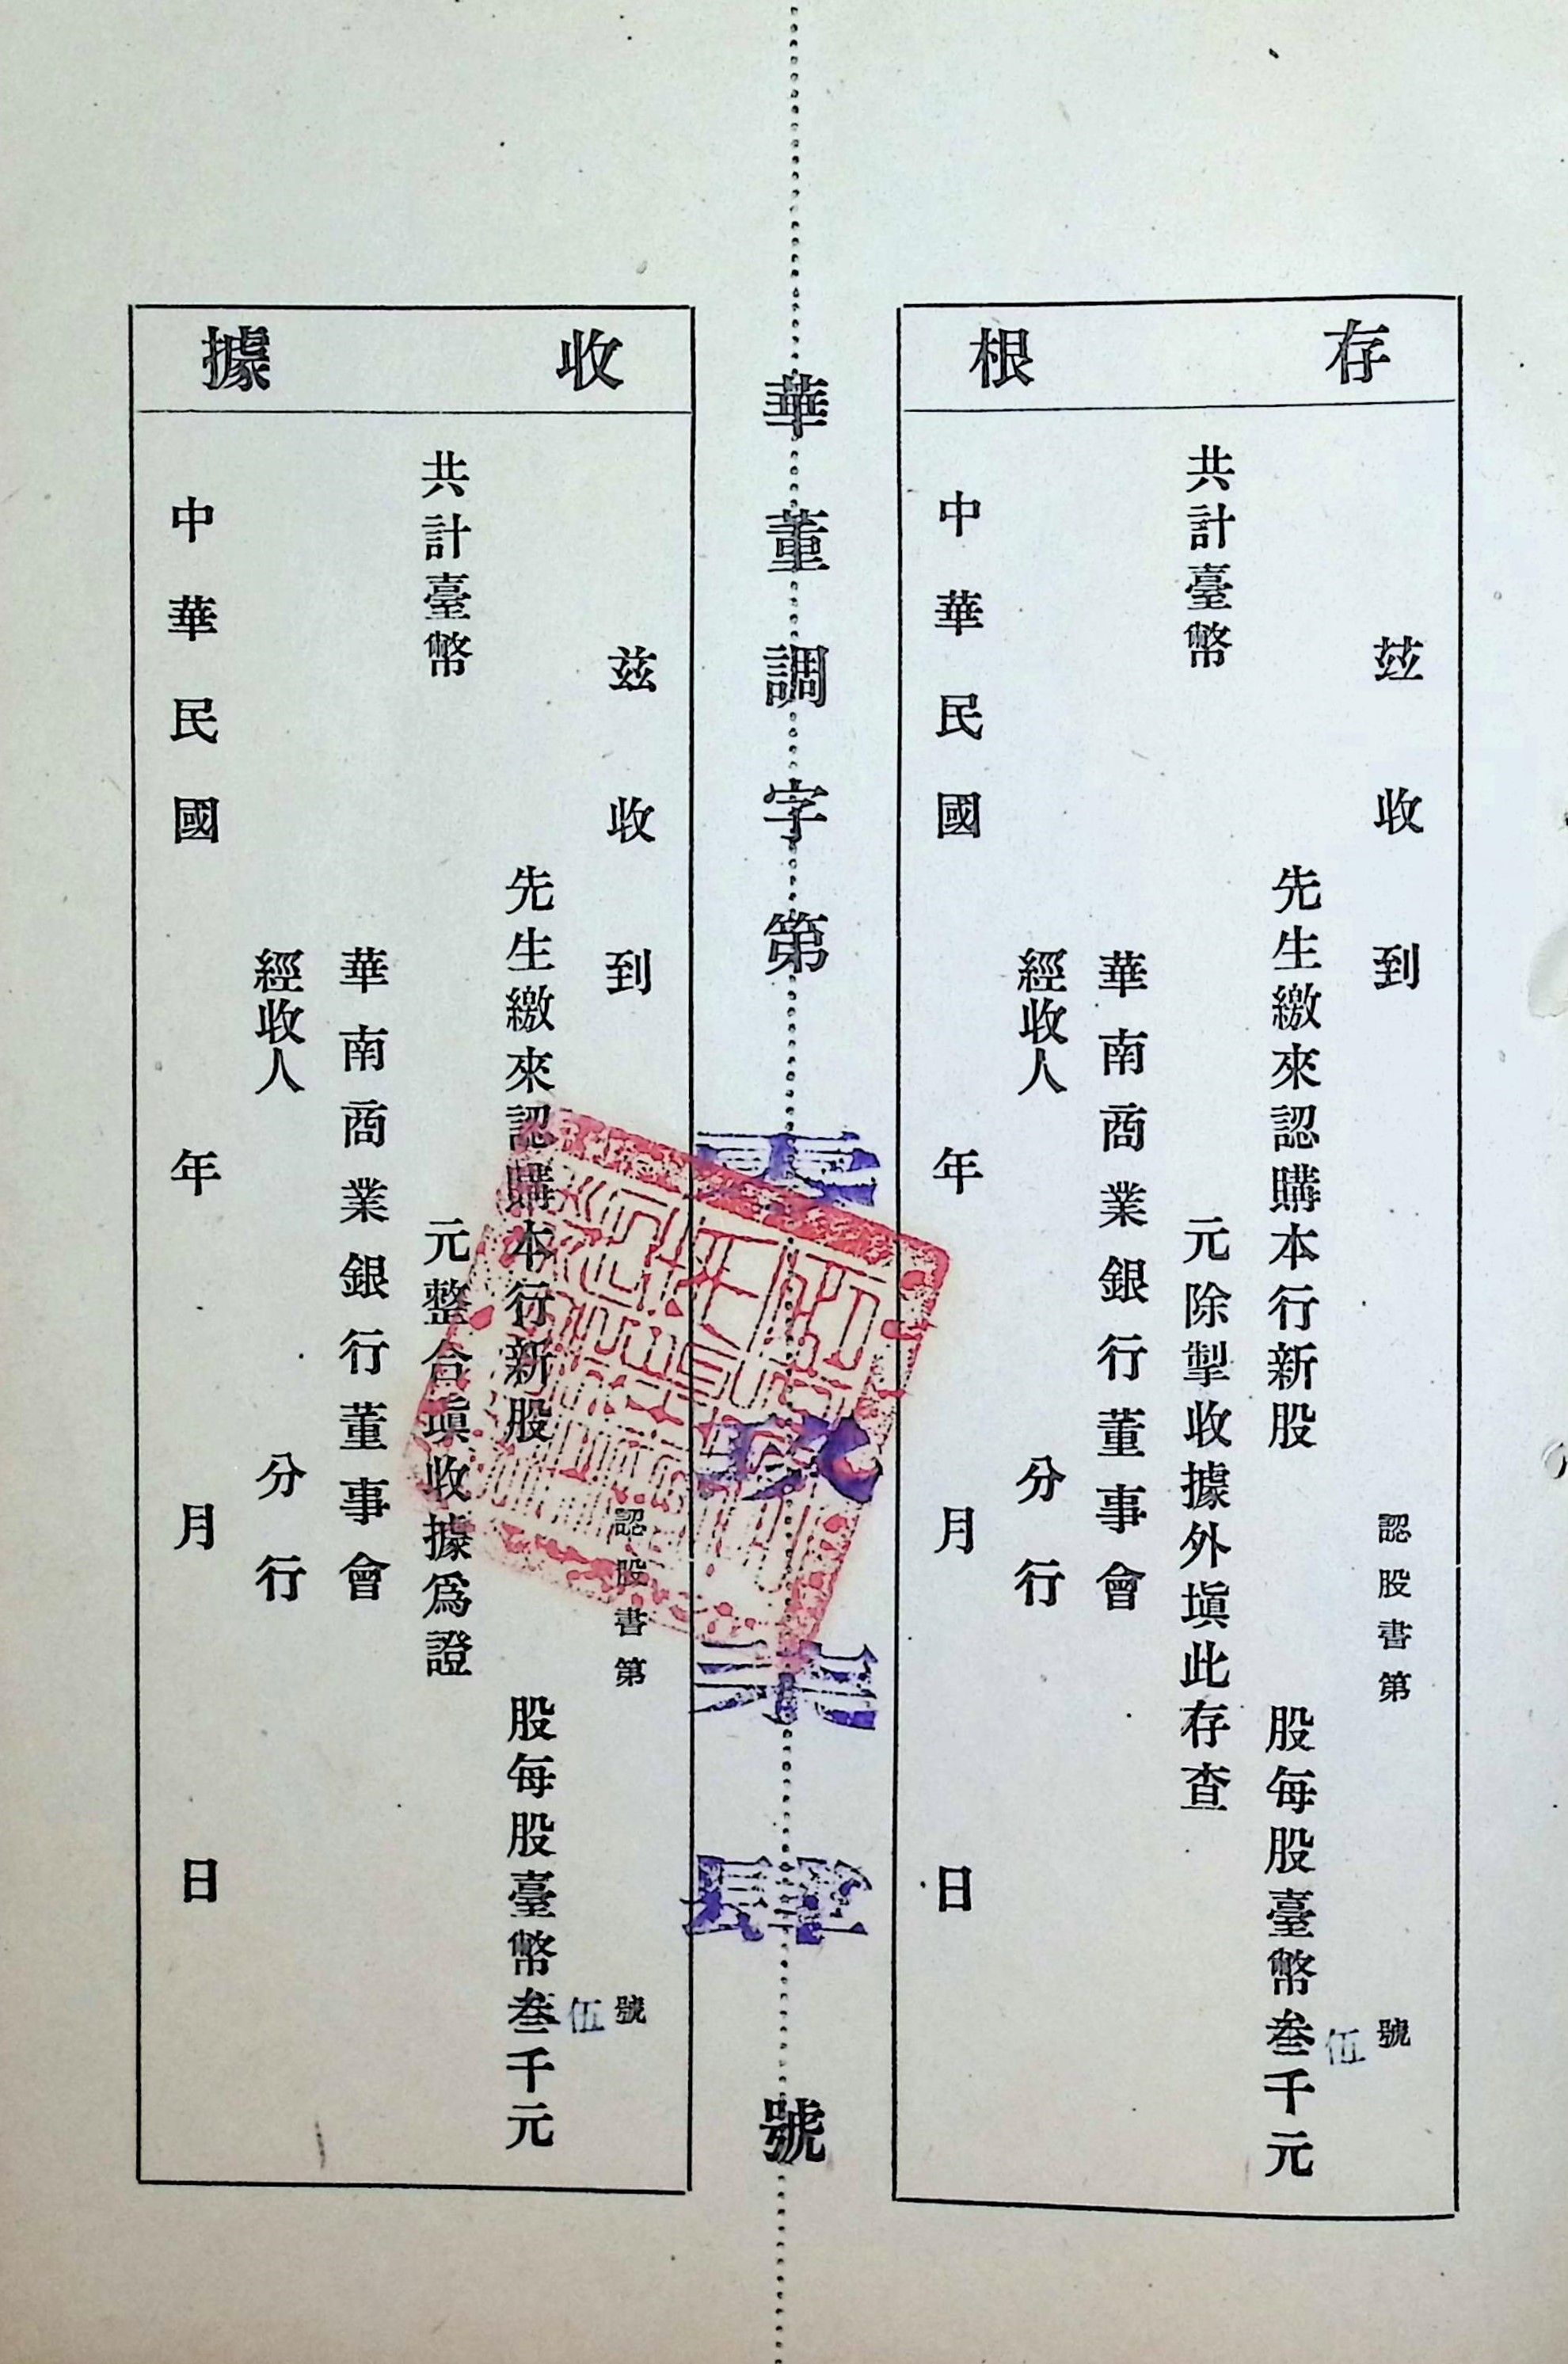 存根
茲收到
認股書第
號
先生繳來認購本行新股
股每股臺幣叁千元
伍
共計臺幣
元除掣收據外填此存查
華南商業銀行董事會
經收人
分行
中華民國
年
月
日
華董調字第
玖
柒
肆
號
收據
茲收到
認股書第
號
先生繳來認購本行新股
股每股臺幣叁千元
伍
共計臺幣
元整合填收據爲證
華南商業銀行董事會
經收人
分行
中華民國
年
月
日